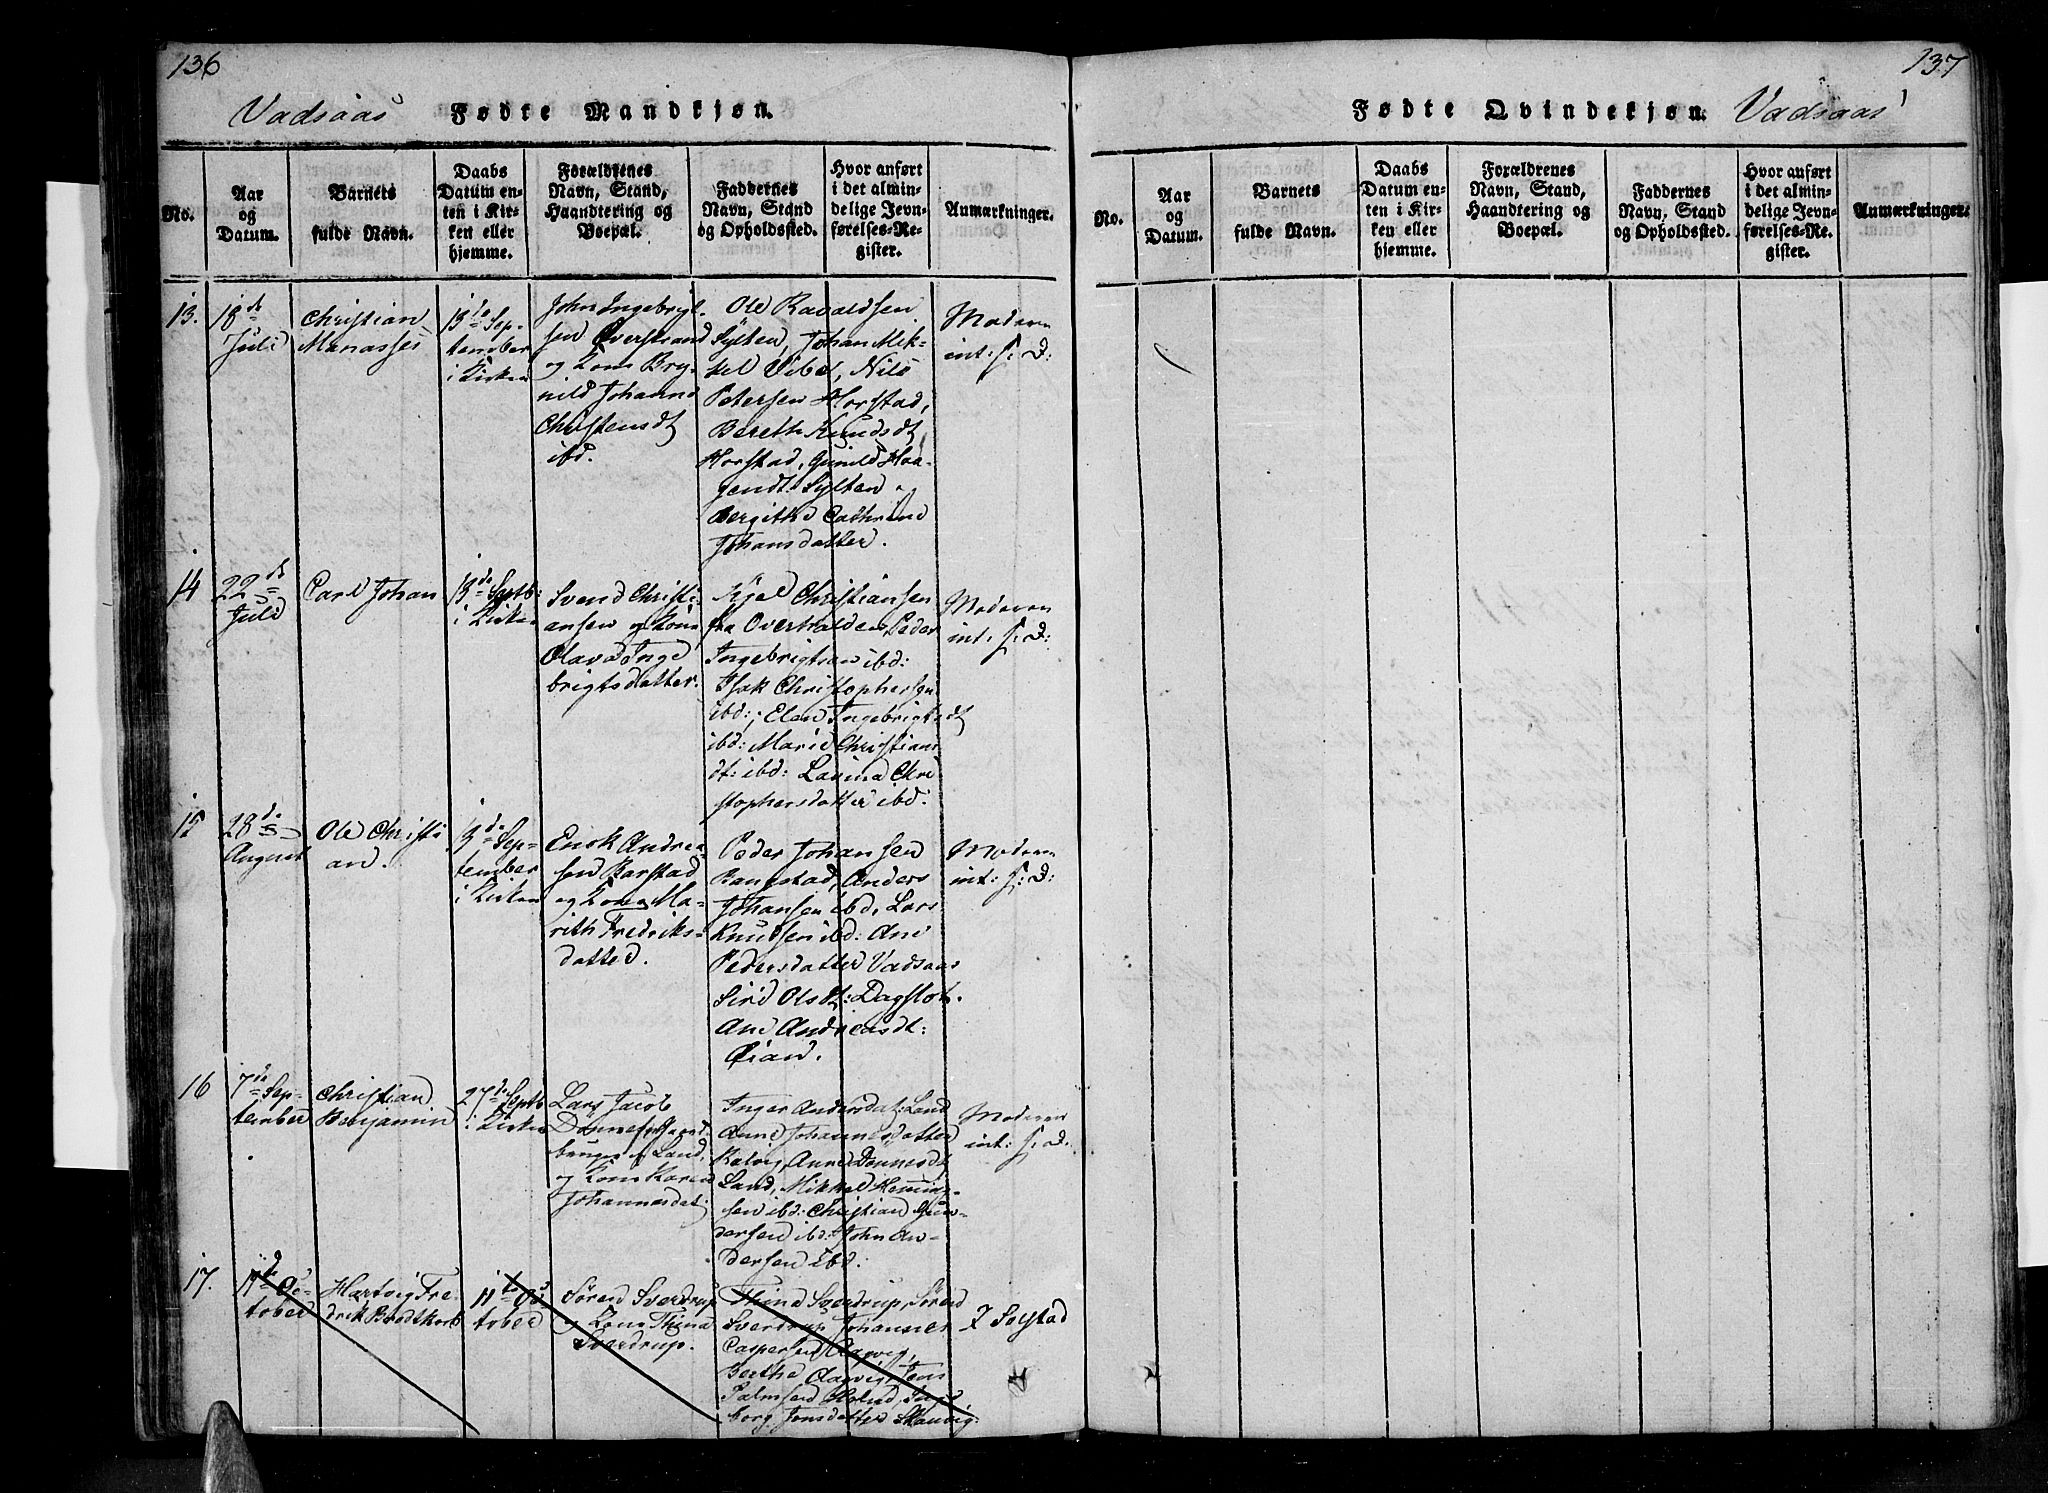 136
Vadsøaas Fødte Mandkjøn.
No.
Aar
og
Datum.
Barnets
fulde Navn.
Daabs
Datum en-
ten i Kir-
ken eller
hjemme.
Forældrenes
Navn, Stand,
Haandtering og
Boepæl.
Faddernes
Navn, Stand
og Opholdssted.
Hvor anført
i det almin-
delige Jevn-
førelses-Re-
gister.
Anmærkninger.
13.
18de
Juli
Christian
Manasses
13de Sep-
tember
i Kirken
John Ingebrigt-
sen Overstrand
og Kone Bry-
nild Johanna
Christensdt
ibd.
Ole Ravaldsen
Sylten, Johan Mik-
kel Vibe, Nils
Petersen Horstad,
Bereth Knudsdt
Horstad, Gunild Haa-
gendt: Sylten og
Bergitha Cathrine
Johansdatter.
Moderen
int: S: D:
14
22de
Juli
Carl Johan
13de Septb:
i Kirken
Svend Christi-
ansen og Kone
Olava Inge
brigtsdatter.
Kjel Christiansen
fra Overhalden, Peder
Ingebrigtsen ibd:
Isak Christophersen
ibd:, Elen Ingebrigtsdt
ibd: Marie Christians
dt: ibd: Lavina Chri
stophersdatter ibd.
Moderen
int: S: D:
15
28de
August
Ole Christi
an.
13de Sep-
tember
i Kirken
Enok Andrea-
sen Barstad
og Kone Ma-
rith Fredriks-
datter.
Peder Johansen
Bangstad, Anders
Johansen ibd, Lars
Knudsen ibd: Ane
Pedersdatter Vadsaas
Siri Olsdt: Dagslot.
Ane Andreasdt:
Øian.
Moderen
int: S: D:
16
7de Sep-
tember
Christian
Benjamin
27de Septb
i Kirken
Lars Jacob
Dønnes Gaard-
bruger paa Land,
og Kone Karen
Johannesdat.
Inger Andersdat: Land
Anne Johannesdatter
Kalvig, Anne Dønnesdt
Land, Mikkel Heming-
sen ibd: Christian Gun-
dersen ibd: John An-
dersen ibd:
Moderen
int: S: D:
17.
11te Oc-
tober
Hartvig Fre-
drik Brodtkorb
11te Oc-
tober
Søren Sverdrup
og Kone Thina
Sverdrup.
Thina Sverdrup, Søren
Sverdrup Johannes
Caspersen Aagvig,
Berthe Aagvig, Jens
Palmesen Holand, Inge
borg Jensdatter Skauvig.
I Solstad
137
Fødte Qvindekjøn. Vadsaas
No.
Aar
og
Datum.
Barnets
fulde Navn.
Daabs
Datum en-
ten i Kir-
ken eller
hjemme.
Forældrenes
Navn, Stand,
Haandtering og
Boepæl.
Faddernes
Navn, Stand
og Opholdssted.
Hvor anført
i det almin-
delige Jevn-
førelses-Re-
gister.
Anmærkninger.